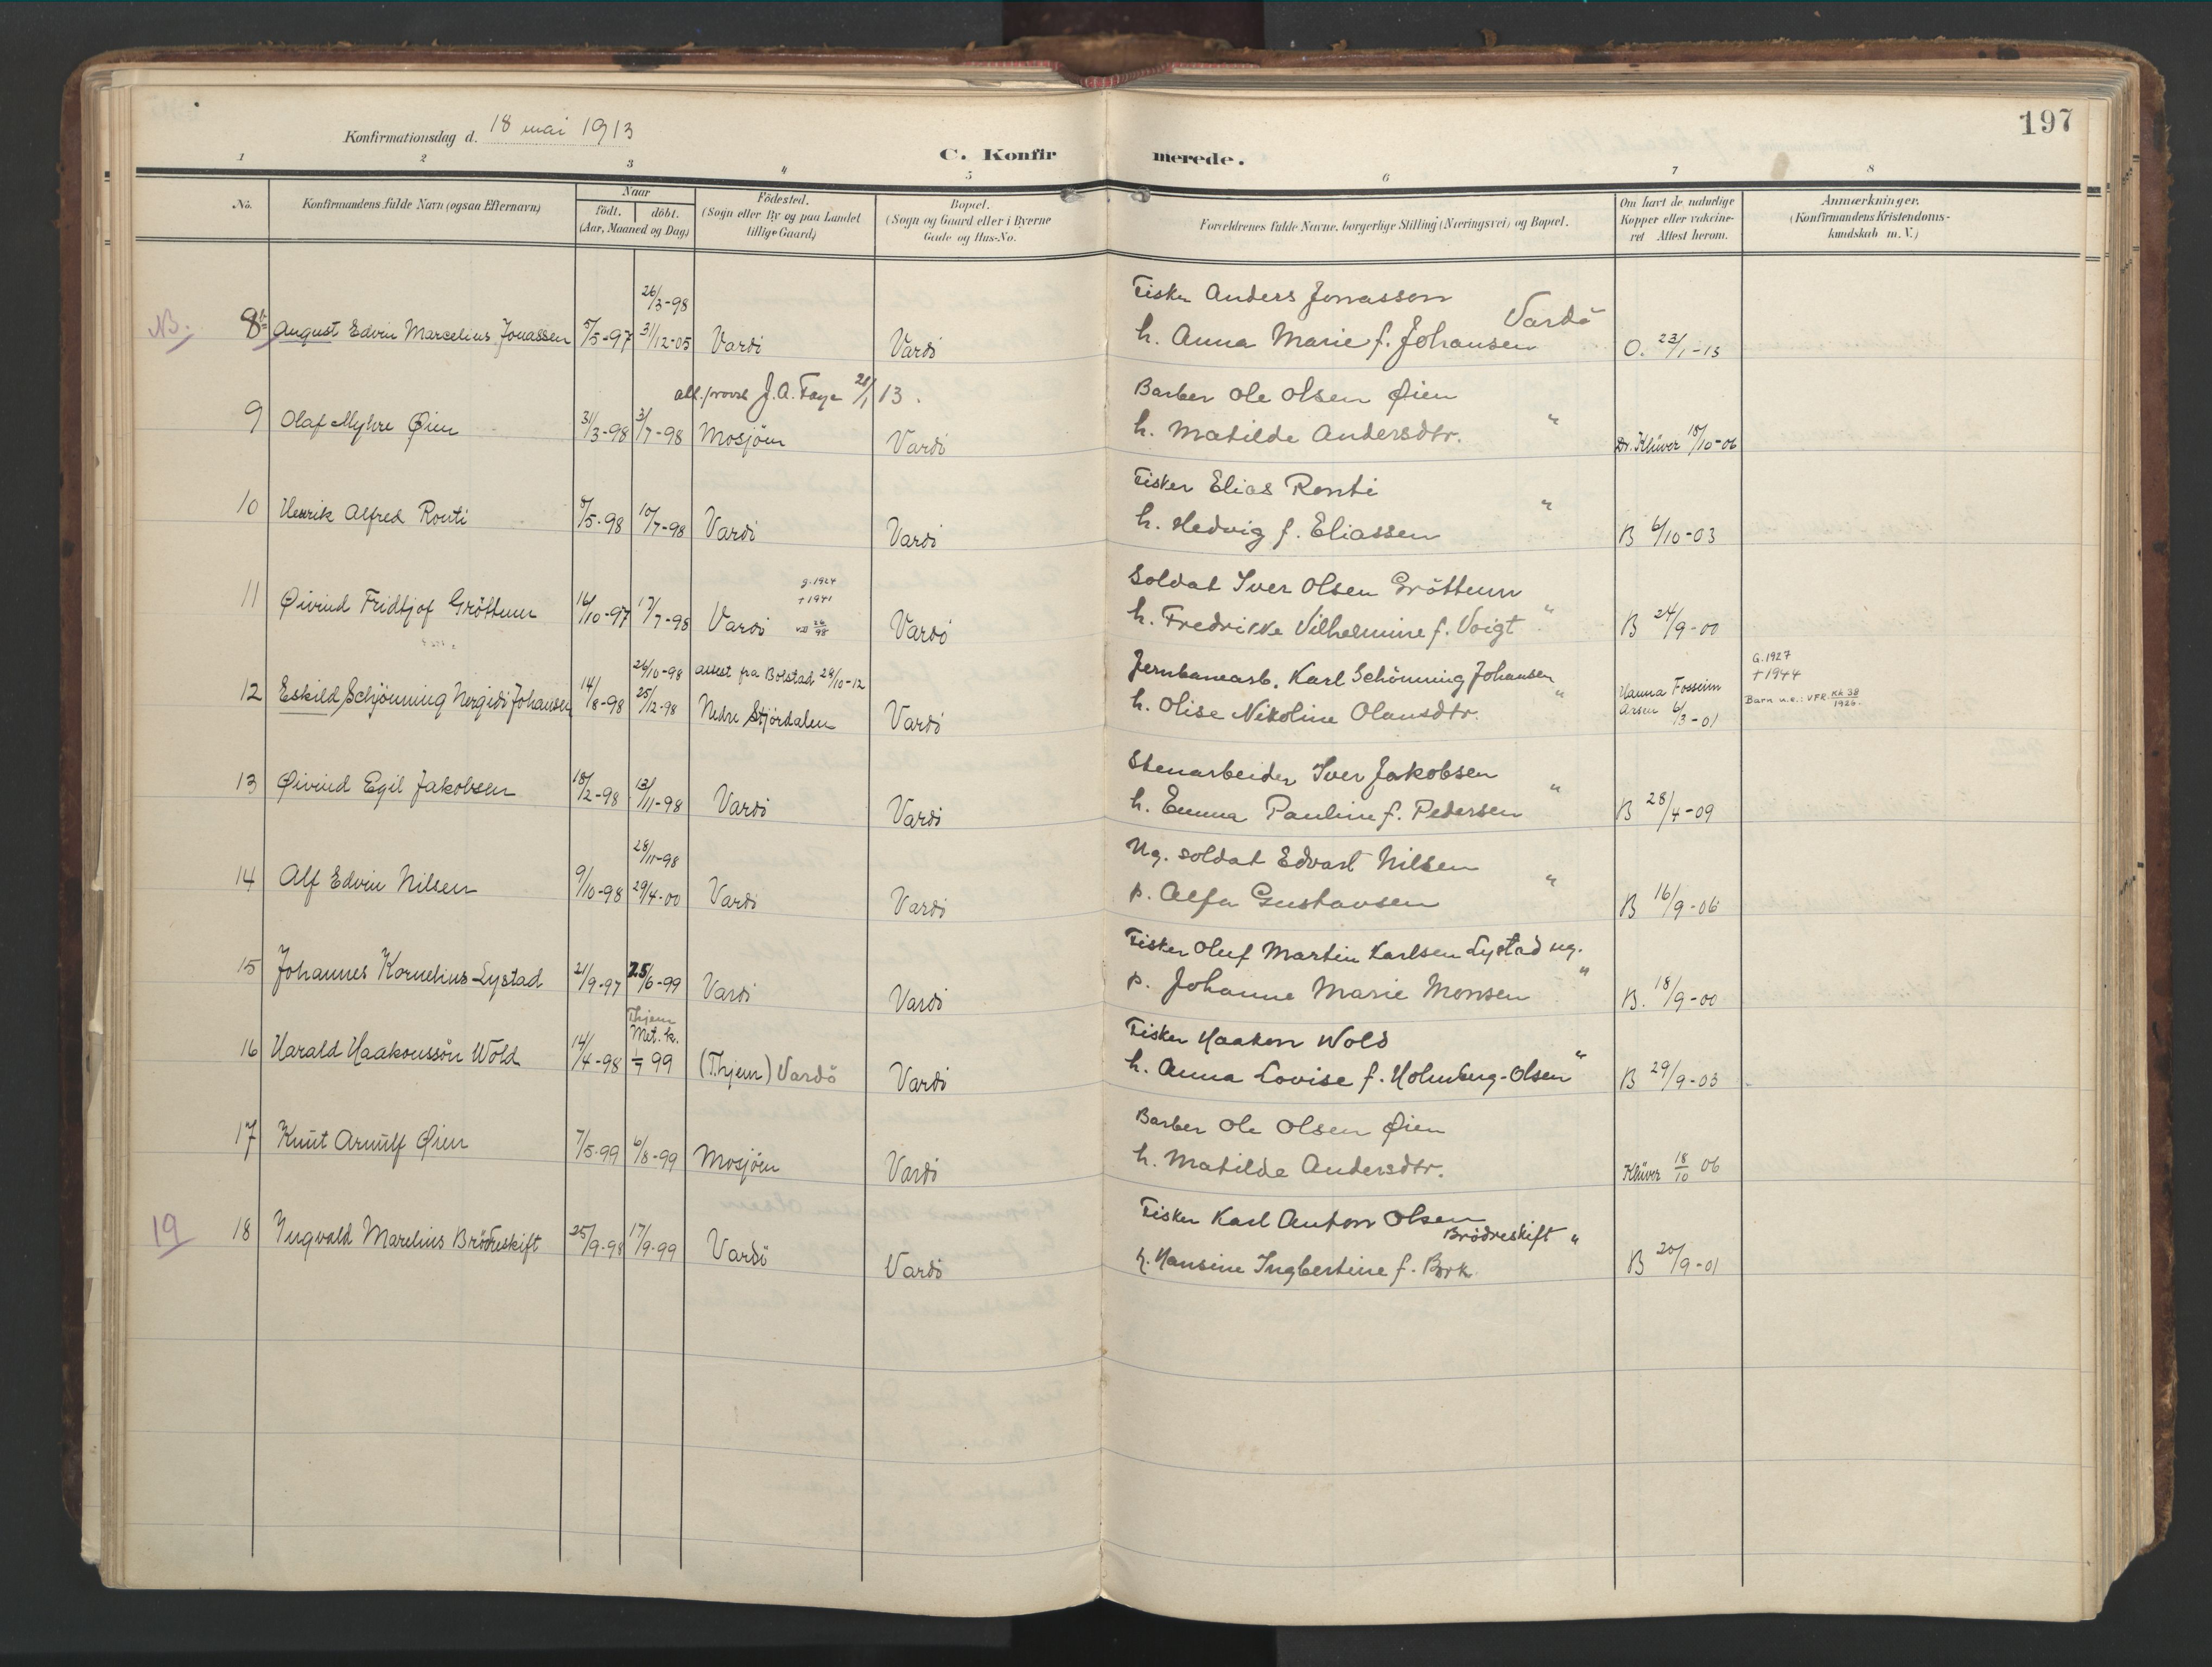 197
Konfirmationsdag d. 18 mai 1913
C. Konfirmerede.
1 2 3 4 5 6 7 8
No. Konfirmandens fulde Navn (ogsaa Efternavn) Naar født. døbt. (Aar, Maaned og Dag) Fødested. (Sogn eller By og paa Landet tillige Gaard) Bopæl. (Sogn og Gaard eller i Byerne Gade og Hus-No. Forældrenes fulde Navne, borgerlige Stilling (Næringsvei) og Bopæl. Om havt de naturlige Kopper eller vakcineret Attest herom. Anmærkninger. (Konfirmandens Kristendomskundskab m. V.)
26/3-98 Fisker Anders Jonasson
NB. 8b August Edvin Marcelius Jonassen 5/5-97 31/12-05 Vardö Vardö h. Anna Marie f. Johansen Vardö O. 23/1-13
J. A. Faye 21/1 13. Barber Ole Olsen Øien
9 Olaf Myhre Øien 31/3-98 3/7-98 Mosjöen Vardö h. Matilde Andersdtr. " Dr. Klüver 18/10-06
Fisker Elias Ronti
10 Henrik Alfred Routi 8/5-98 10/7-98 Vardö Vardö h. Hedvig f. Eliassen " B 6/10-03
g. 1924
+ 1941 Soldat Iver Olsen Gröttum
11 Øivind Fridtjof Gröttum 16/10-97 17/7-98 Vardö Vardö h. Fredrikke Vilhelmine f. Voigt " B 24/9-00
26/10-98 attest fra Bolstad 28/10-12 Jernbanearb. Karl Schönning Johansen G. 1927
+ 1944
12 Eskild Schjönning Johansen 14/8-98 25/12-98 Nedre Stjördalen Vardö h. Olise Nikoline Olausdtr. " Hanna Fosseim 6/3-01 Barn u.e.: VFR. Kk 38 1926.
Stenarbeider Iver Jakobsen
13 Øivind Egil Jakobsen 18/2-98 13/11-98 Vardö Vardö h. Emma Pauline f. Pedersen " B 28/4-09
28/11-98 Ug. soldat Edvart Nilsen
14 Alf Edvin Nilsen 9/10-98 29/4-00 Vardö Vardö p. Alfa Gustavsen " B 16/9-06
Fisker Oluf Martin Karlsen Lystad ug.
15 Johannes Kornelius Lystad 21/9-97 25/6-99 Vardö Vardö p. Johanne Marie Monsen " B. 18/9-00
Thjem
Met. k. Fisker Haakon Wold
16 Harald Haakonssön Wold 14/4-98 99 (Thjem) Vardö Vardö h. Anna Lovise f. Holmberg-Olsen " B 29/9-03
Barber Ole Olsen Øien
17 Knut Arnulf Øien 7/5-99 6/8-99 Mosjöen Vardö h. Matilde Andersdtr. Klüver 18/10 06
Fisker Karl Anton Olsen
Brödreskift "
19 18 Ingvald Marelius Brödreskift 25/9-98 17/9-99 Vardö Vardö h. Hansine Ingbertine f. Bork B 20/9-01